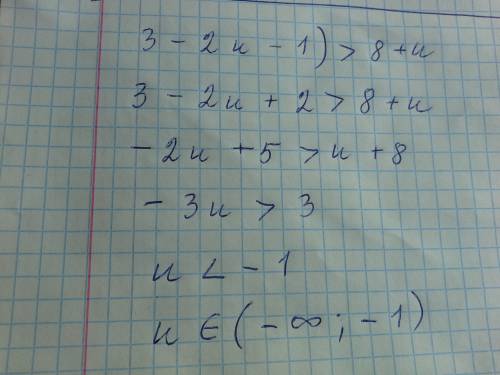 3 - 2u - 1) > 8 + u
3 - 2u + 2 > 8 + u
- 2u + 5 > u + 8
- 3u > 3
u < - 1
u ∈ ( - ∞ ; - 1 )